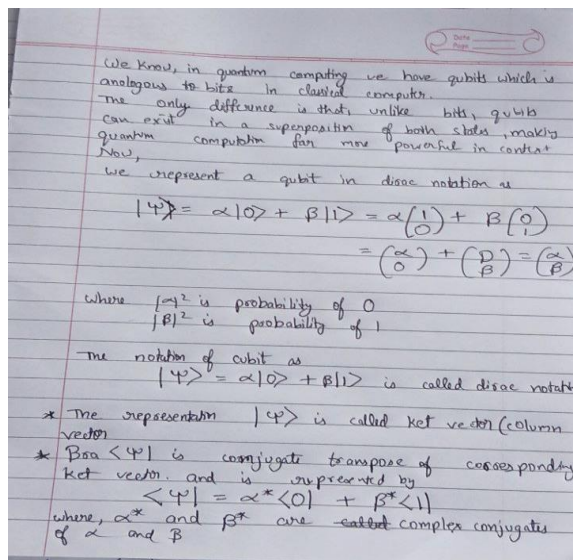 Date
Page
We know, in quantum computing we have qubits which is
analogous to bits in classical computer.
The only difference is that, unlike bits, qubits
can exist in a superposition of both states, making
quantum computation far more powerful in context
Now,
we represent a qubit in dirac notation as
|Ψ> = α|0> + β|1> = α(1 0) + β(0 1)
= (α 0) + (0 β) = (α β)
where |α|² is probability of 0
|β|² is probability of 1
The notation of cubit as
|Ψ> = α|0> + β|1> is called dirac notat
* The representatn |Ψ> is called ket vector (column
vector
* Bra <Ψ| is conjugate transpose of corresponding
ket vector. and is represented by
<Ψ| = α*<0| + β*<1|
where, α* and β* are called complex conjugates
of α and β